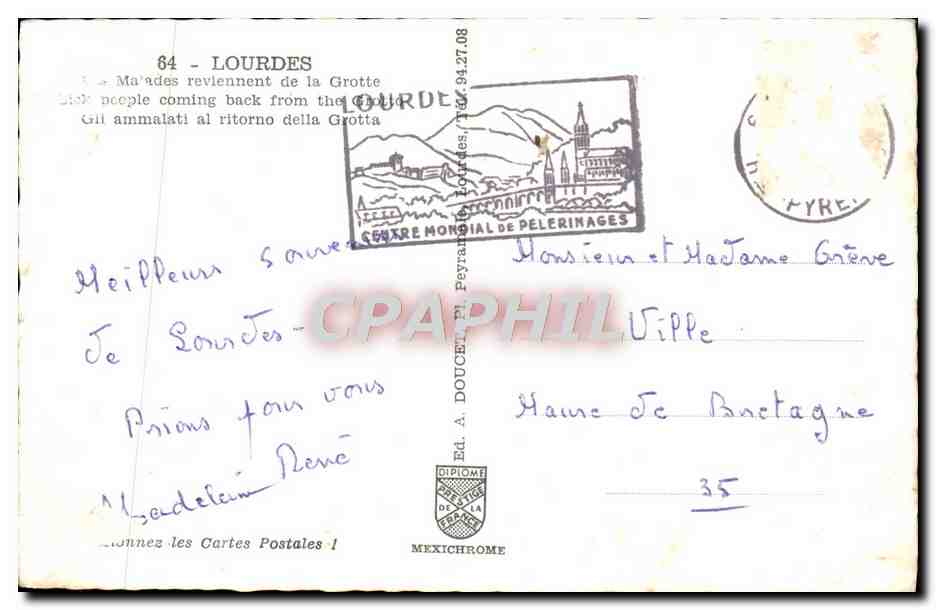 64 - LOURDES
Malades reviennent de la Grotte
Sick people coming back from the Grotto
Gli ammalati al ritorno della Grotta
LOURDES
CENTRE MONDIAL DE PÈLERINAGES
PYRE
Meilleurs souvenirs
de Lourdes-
Prions pour vous
Madelein René
Collectionnez les Cartes Postales !
Ed. A. DOUCET, Pl. Peyramale, Lourdes, Tél. 94.27.08
CPAPHIL
DIPLOME
PRESTIGE
DE LA
FRANCE
MEXICHROME
Monsieur et Madame Grève
Ville
Maure de Bretagne
35